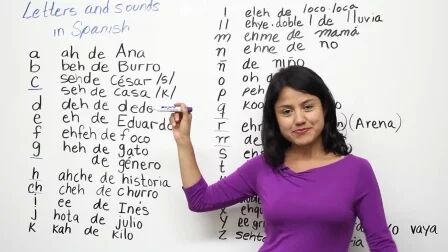 Letters and sounds
in Spanish
a ah de Ana
b beh de Burro
c seh de César /s/
seh de Casa /k/
d deh de dedo
e eh de Eduardo
f ehfeh de foco
g heh de gato
de género
h ahche de historia
ch cheh de churro
i ee de Inés
j hota de julio
k kah de kilo
l eleh de loco.loca
ll ehye.doble l de lluvia
m ehme de mamá
n ehne de no
ñ de niño
o oh d
p peh
q koo
r ehr (Arena)
rr
s eh
t
x ehqui
y ee gri yo vaya
z seht